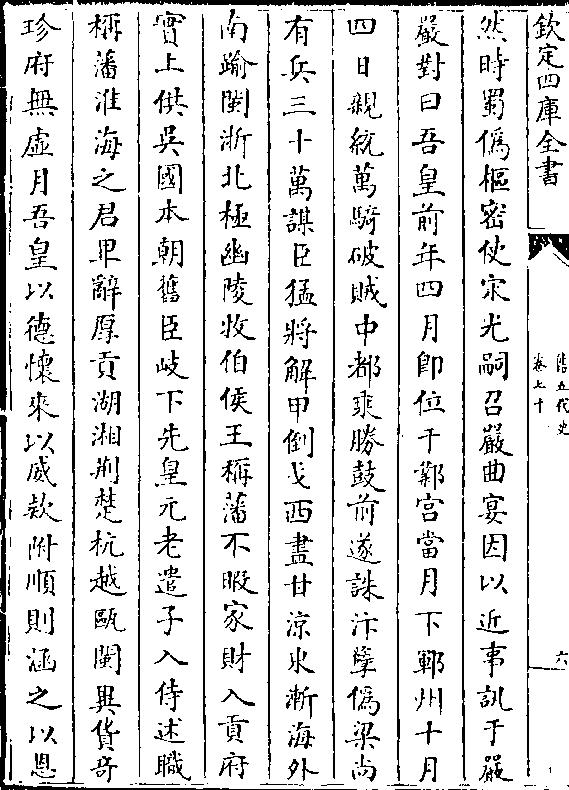 欽定四庫全書
舊五代史
卷七十
六
然時蜀僞樞密使宋光嗣召嚴曲宴因以近事訊于嚴
嚴對曰吾皇前年四月卽位于鄴宮當月下鄆州十月
四日親統萬騎破賊中都乘勝鼓前遂誅汴孽僞梁尚
有兵三十萬謀臣猛將解甲倒戈西盡甘涼東漸海外
南踰閩浙北極幽陵牧伯侯王稱藩不暇家財入貢府
實上供吳國本朝舊臣岐下先皇元老遣子入侍述職
稱藩淮海之君卑辭厚貢湖湘荆楚杭越甌閩異貨奇
珍府無虛月吾皇以德懷來以威款附順則涵之以恩